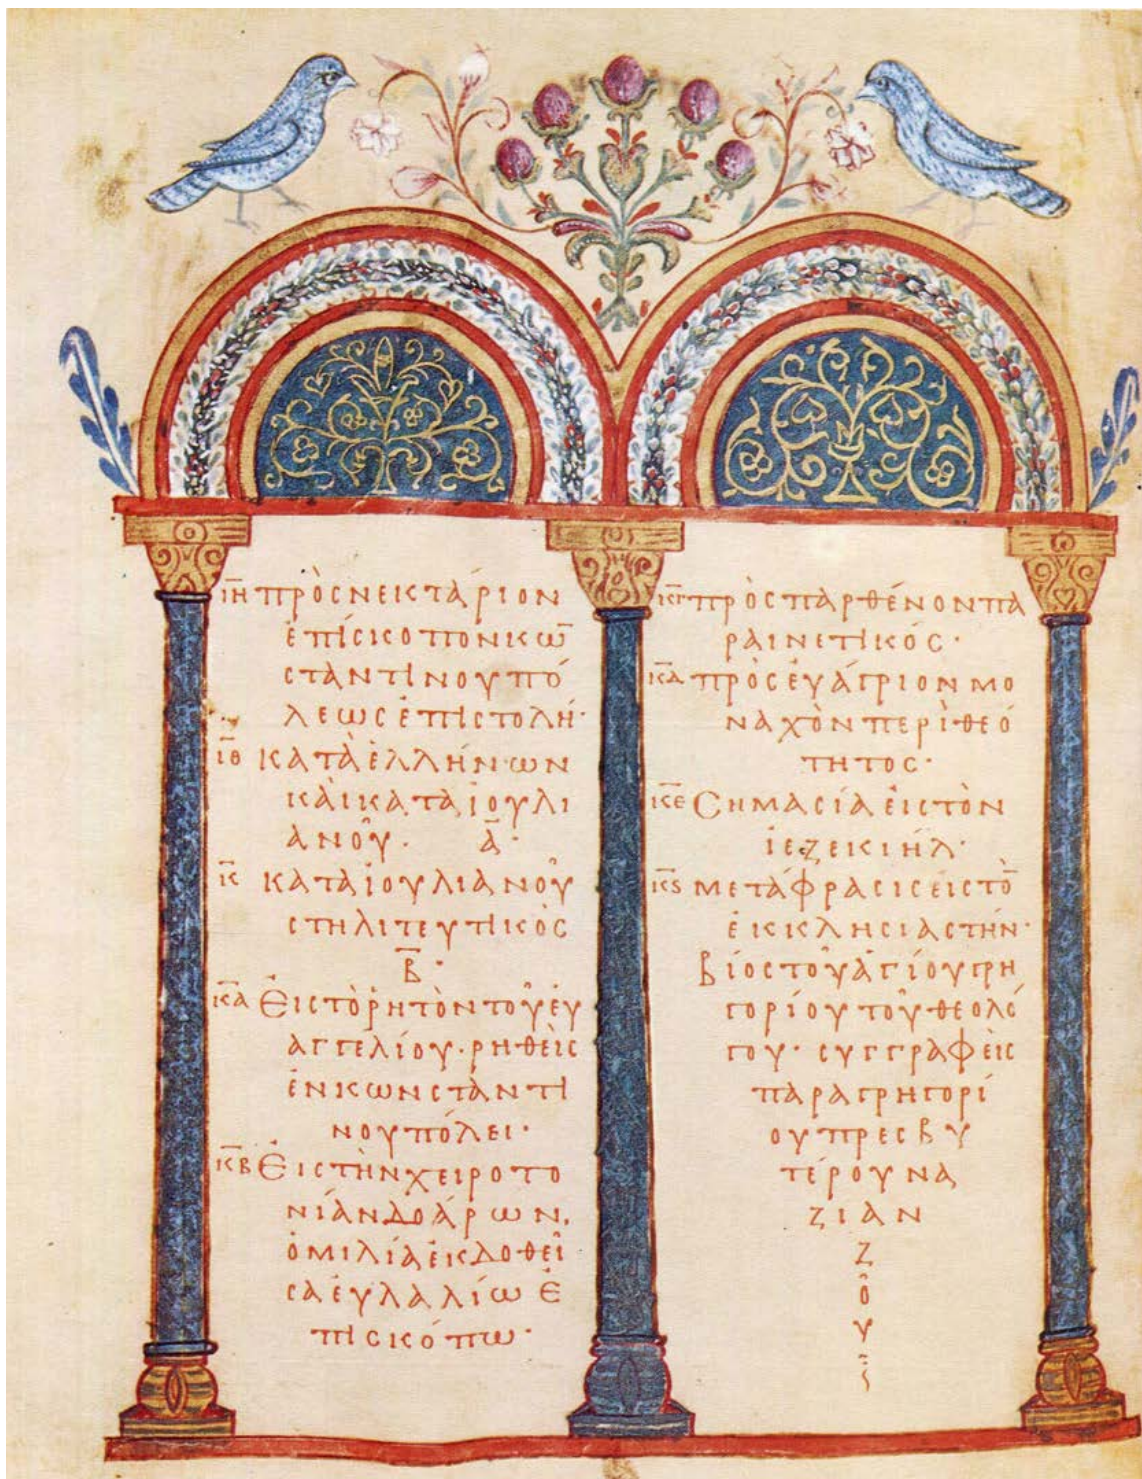 ιη πρὸς νεκτάριον
ἐπίσκοπον κω̅
σταντινουπό
λεως ἐπιστολή·
ιθ κατὰ ἑλλήνων
καὶ κατα ϊουλι
ανοῦ. α̅·
κ κατα ϊουλιανοῦ
στηλιτευτικὸς
β̅·
κα Εἰς τὸ ῥητὸν τοῦ εὐ
αγγελίου· ρηθεὶς
ἐν κωνσταντι
νουπόλει·
κβ Εἰς τὴν χειροτο
νίαν δοάρων,
ὁμιλία ἐκδοθεῖ
σα εὐλαλίω ἐ
πισκόπω·
κγ πρὸς παρθένον πα
ραινετικός·
κδ πρὸς εὐάγριον μο
ναχὸν περὶ θεό
τητος·
κε Σημασία εἰς τὸν
ἰεζεκιήλ·
κϛ μετάφρασις εἰς τὸ̅
ἐκκλησιαστήν·
βίος τοῦ ἁγίου γρη
γορίου τοῦ θεολό
γου· συγγραφεὶς
παρα γρηγορί
ου πρεσβυ
τέρου να
ζιαν
ζ
ο
υ